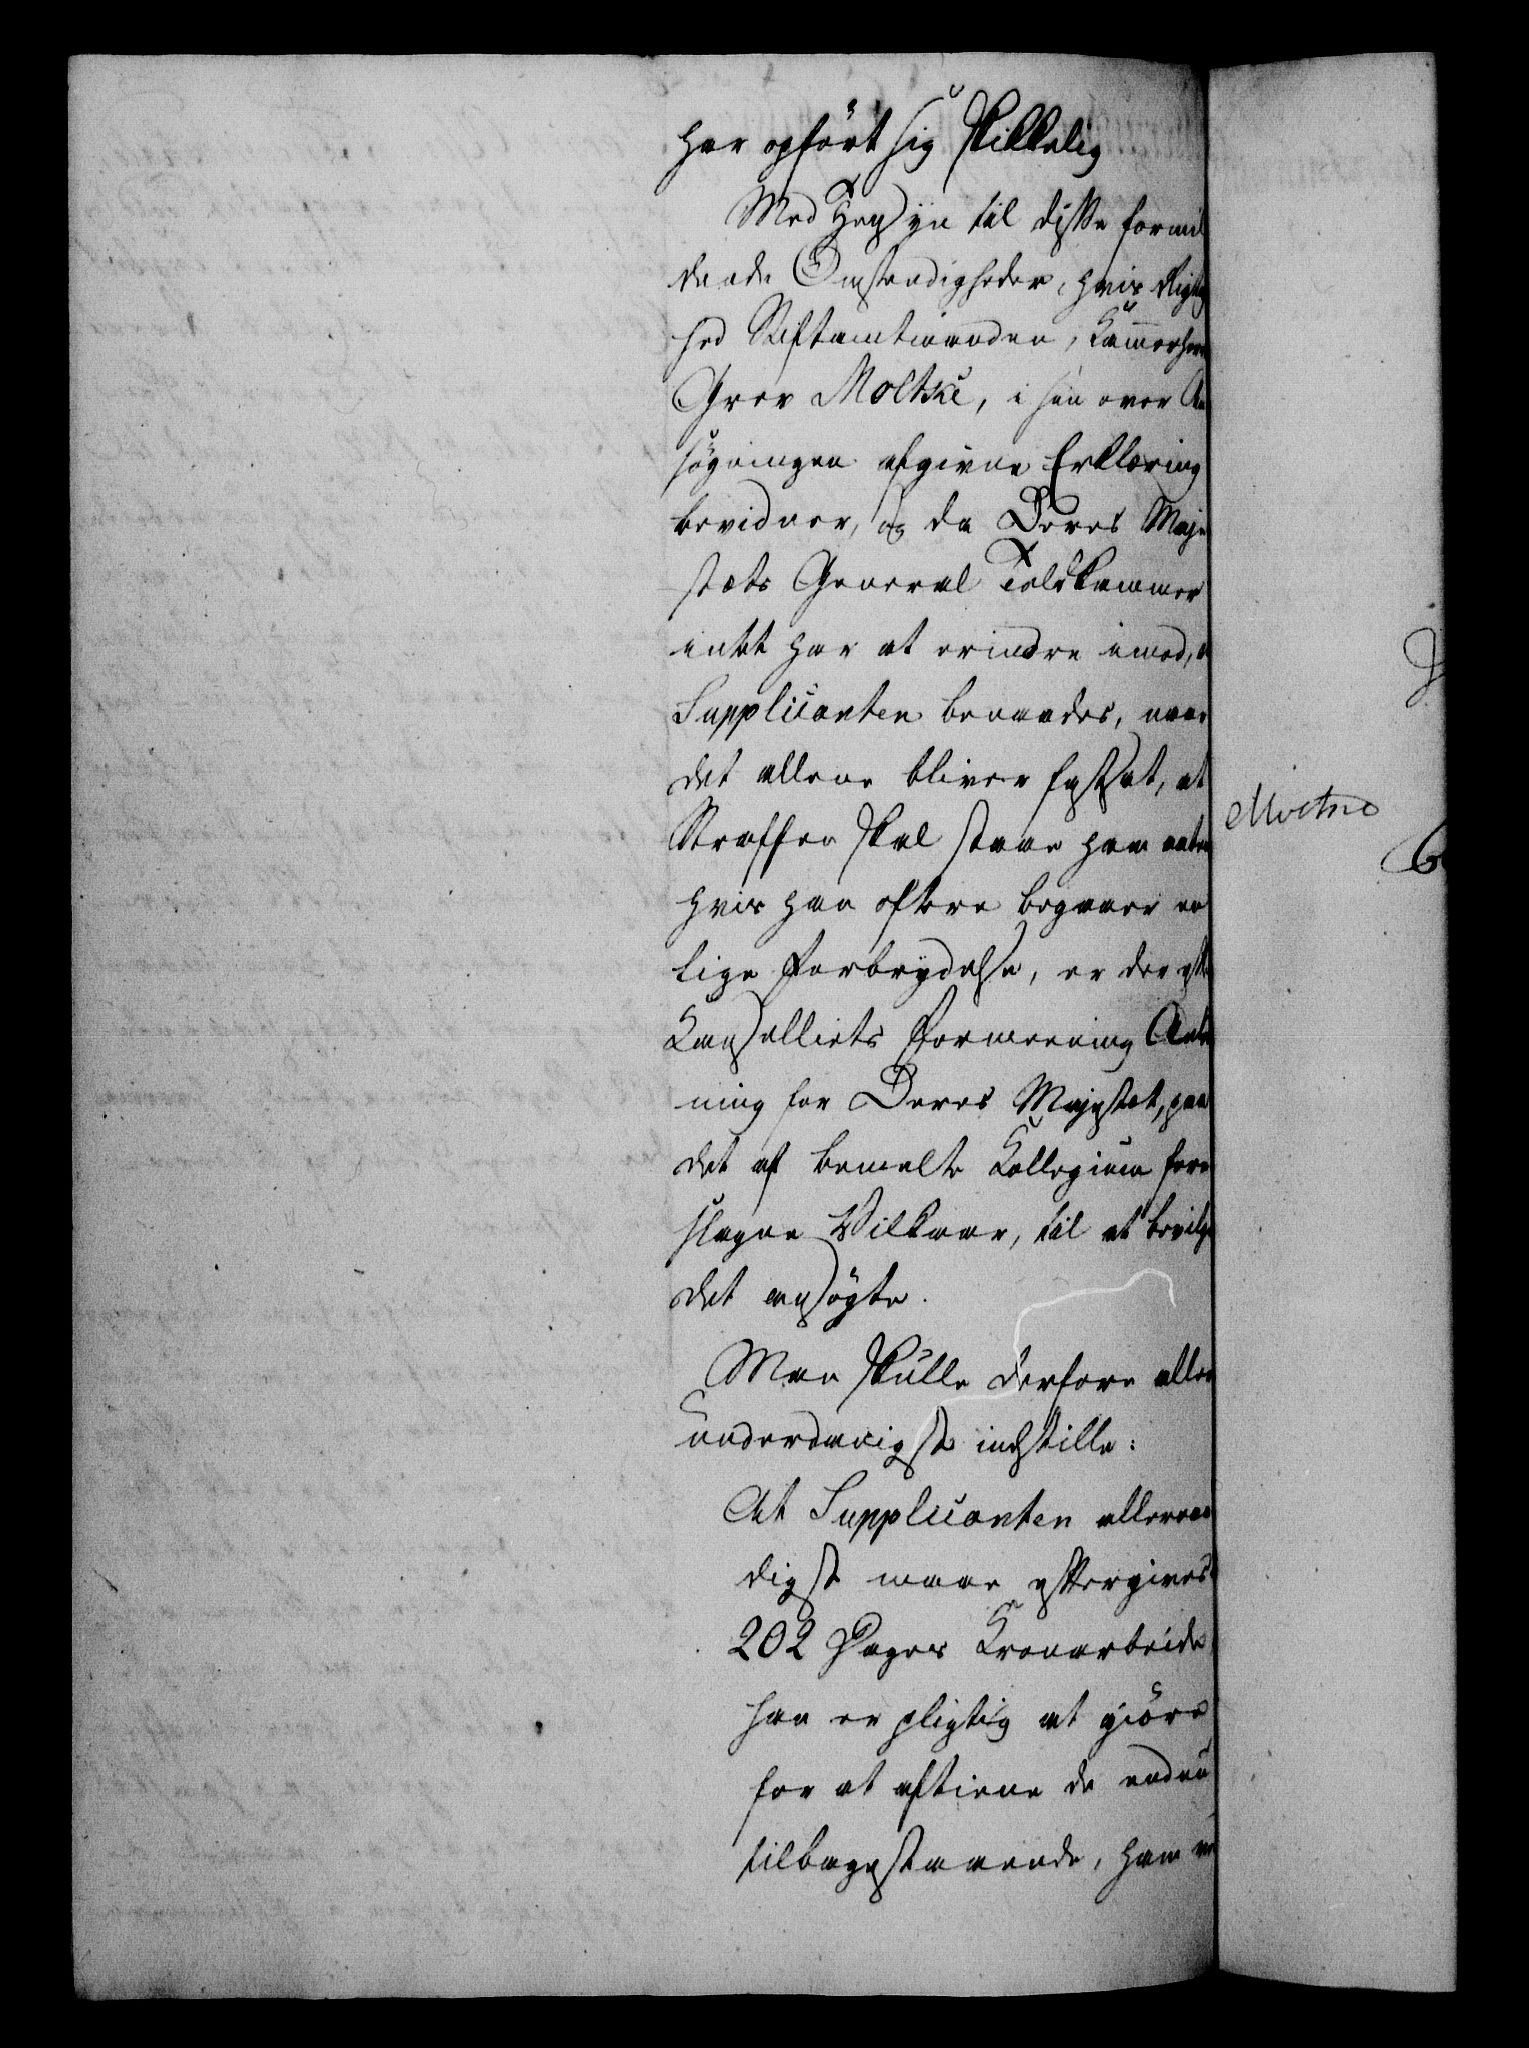 har opført sig skikkelig
Med Hensyn til disse formil
dende Omstændigheder, hvis Rigtig
hed Stiftamtmanden, Kammerherre
Grev Moltke, i sin over An
søgningen afgivne Erklæring
bevidner, og da Deres Maje
stæts General Toldkammer
intet har at erindre imod, a
Supplicanten benaades, naar
det allene bliver fastsat, at
Straffen skal staae ham aaben
hvis han oftere begaaer en
lige Forbrydelse, er der efter
Kanselliets Formeening Anled
ning for Deres Majestæt, paa
det af bemelte Kollegium fore
slagne Vilkaar, til at bevilge
det ansøgte.
Man skulle derfore aller
underdanigst indstille:
At Supplicanten allernaa
digst maae eftergives
202 Dages Kronarbeide
han er pligtig at giøre
for at aftiene de endnu
tilbagestaaende, ham ve